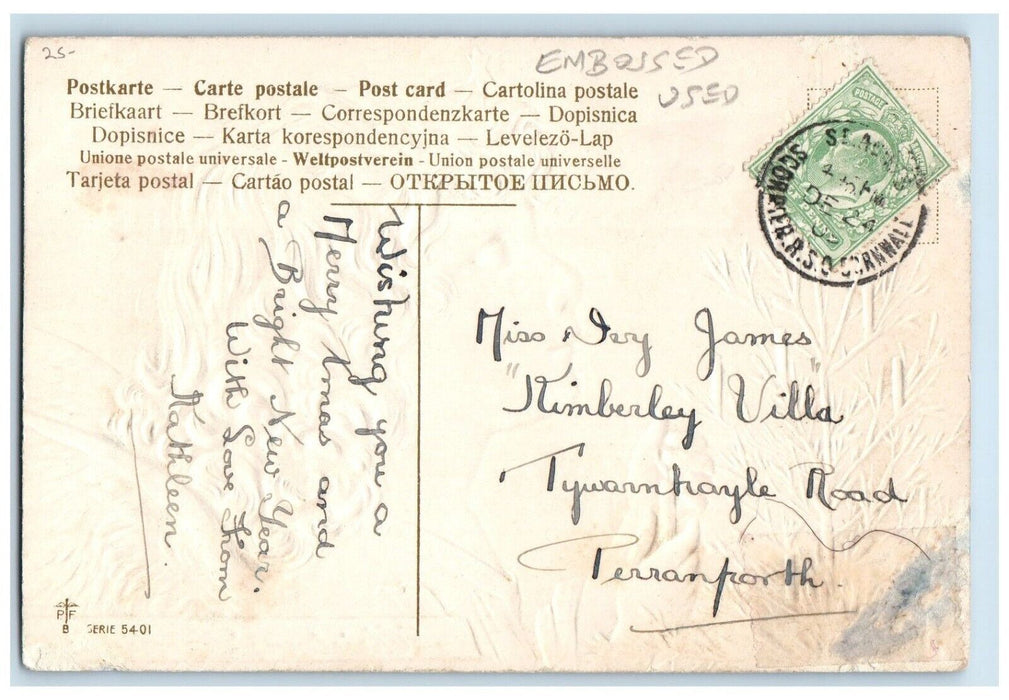 25-
EMBOSSED
USED
Postkarte — Carte postale — Post card — Cartolina postale
Briefkaart — Brefkort — Correspondenzkarte — Dopisnica
Dopisnice — Karta korespondencyjna — Levelező-Lap
Unione postale universale - Weltpostverein - Union postale universelle
Tarjeta postal — Cartáo postal — ОТКРЫТОЕ ПИСЬМО.
POSTAGE
DE 24
SCORRIER.R.S.O. CORNWALL
Wishing you a
Merry Xmas and
a Bright New Year.
With Love from
Kathleen.
Miss Ivy James
"Kimberley Villa"
Tywarnhayle Road
Perranporth.
PF
B SERIE 5401